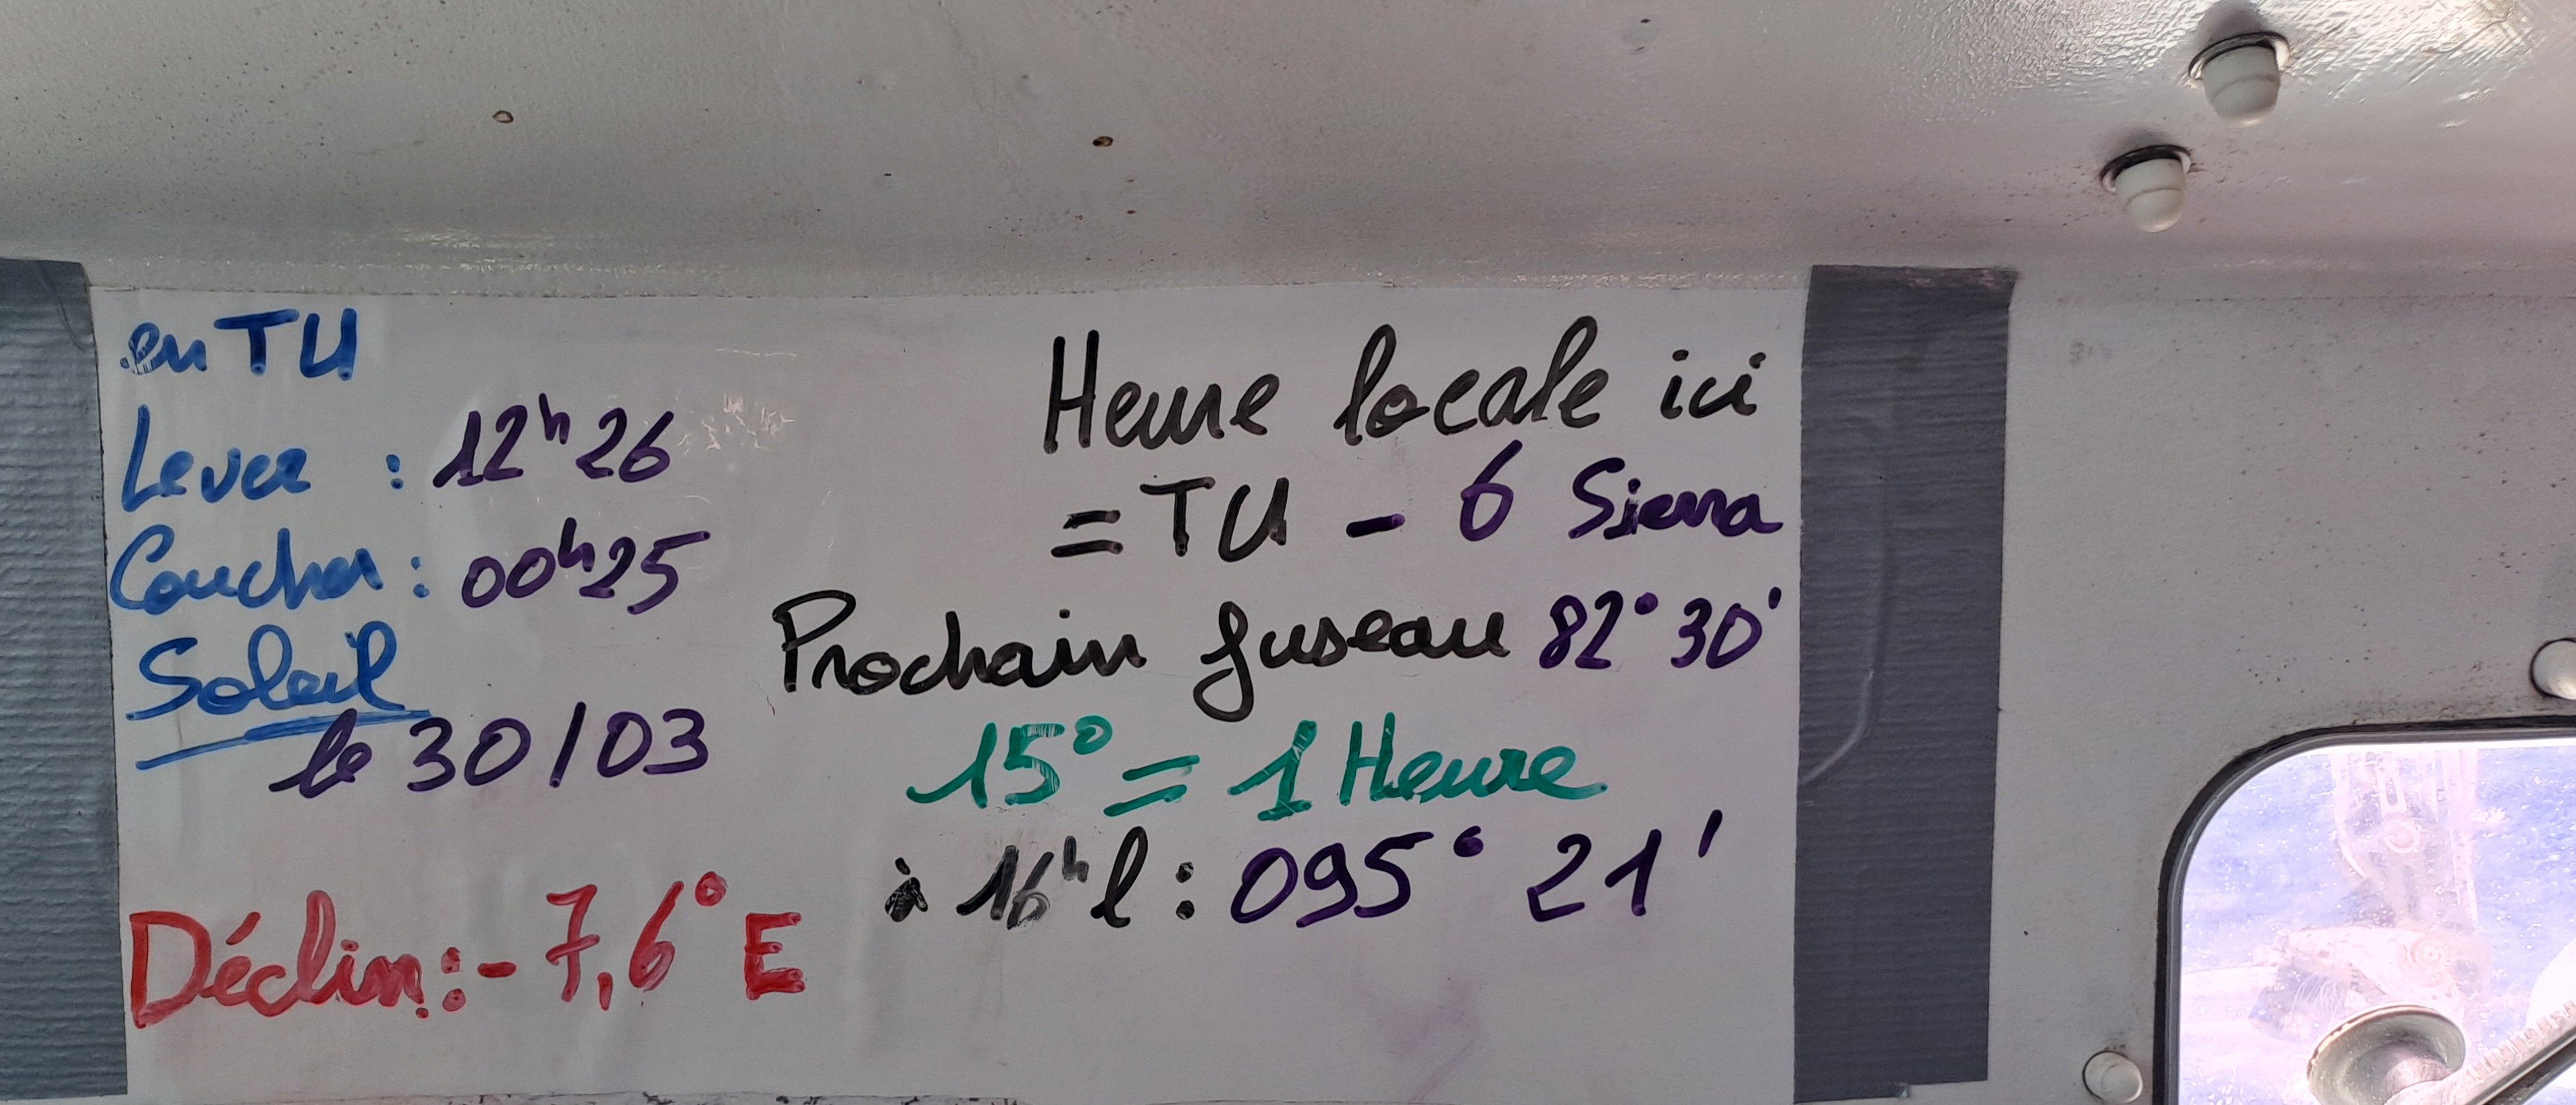 en TU
Lever : 12h26
Coucher : 00h25
Soleil
le 30/03
Déclin: - 7,6° E
Heure locale ici
= TU - 6 Sierra
Prochain fuseau 82° 30'
15° = 1 Heure
à 16h l : 095° 21'